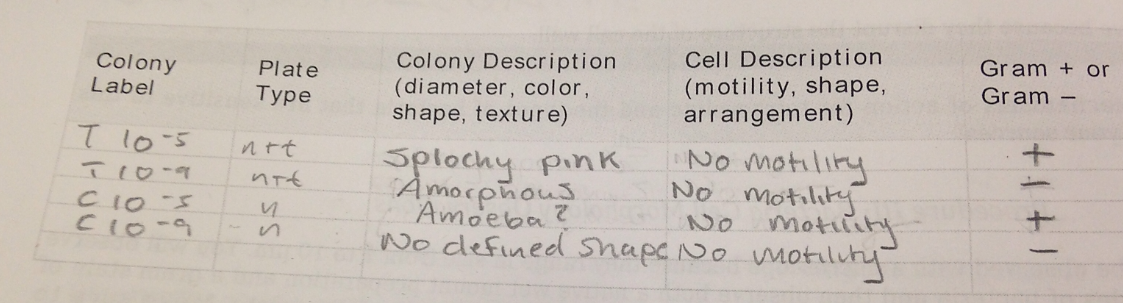 Colony Label Plate Type Colony Description (diameter, color, shape, texture) Cell Description (motility, shape, arrangement) Gram + or Gram −
T 10-5 n+t Splochy pink No motility +
T 10-9 n+t Amorphous No motility −
C 10-5 n Amoeba? No motility +
C 10-9 n No defined shape No motility −